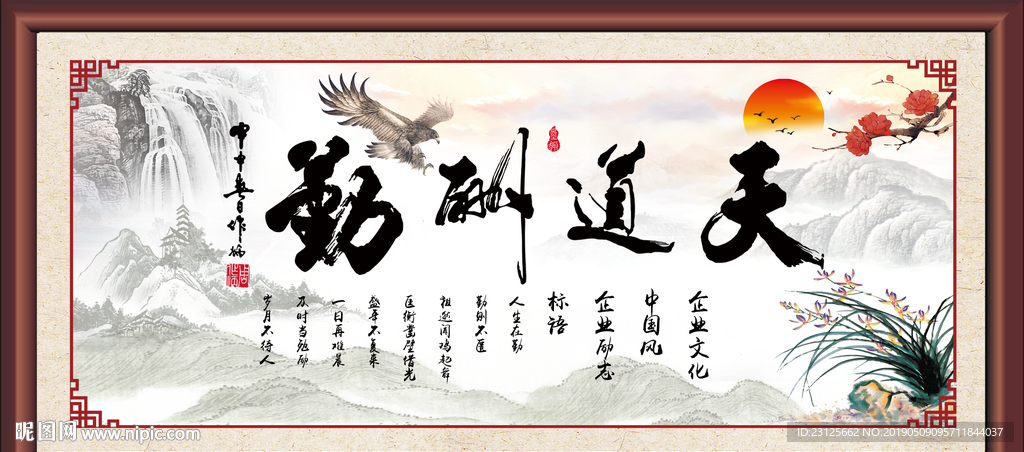 天道酬勤
企业文化
中国风
企业励志
标语
人生在勤
勤则不匮
祖逖闻鸡起舞
匡衡凿壁借光
盛年不复来
一日再难晨
及时当勉励
岁月不待人
昵图网 www.nipic.com
ID:23125662 NO:20190509095711844037